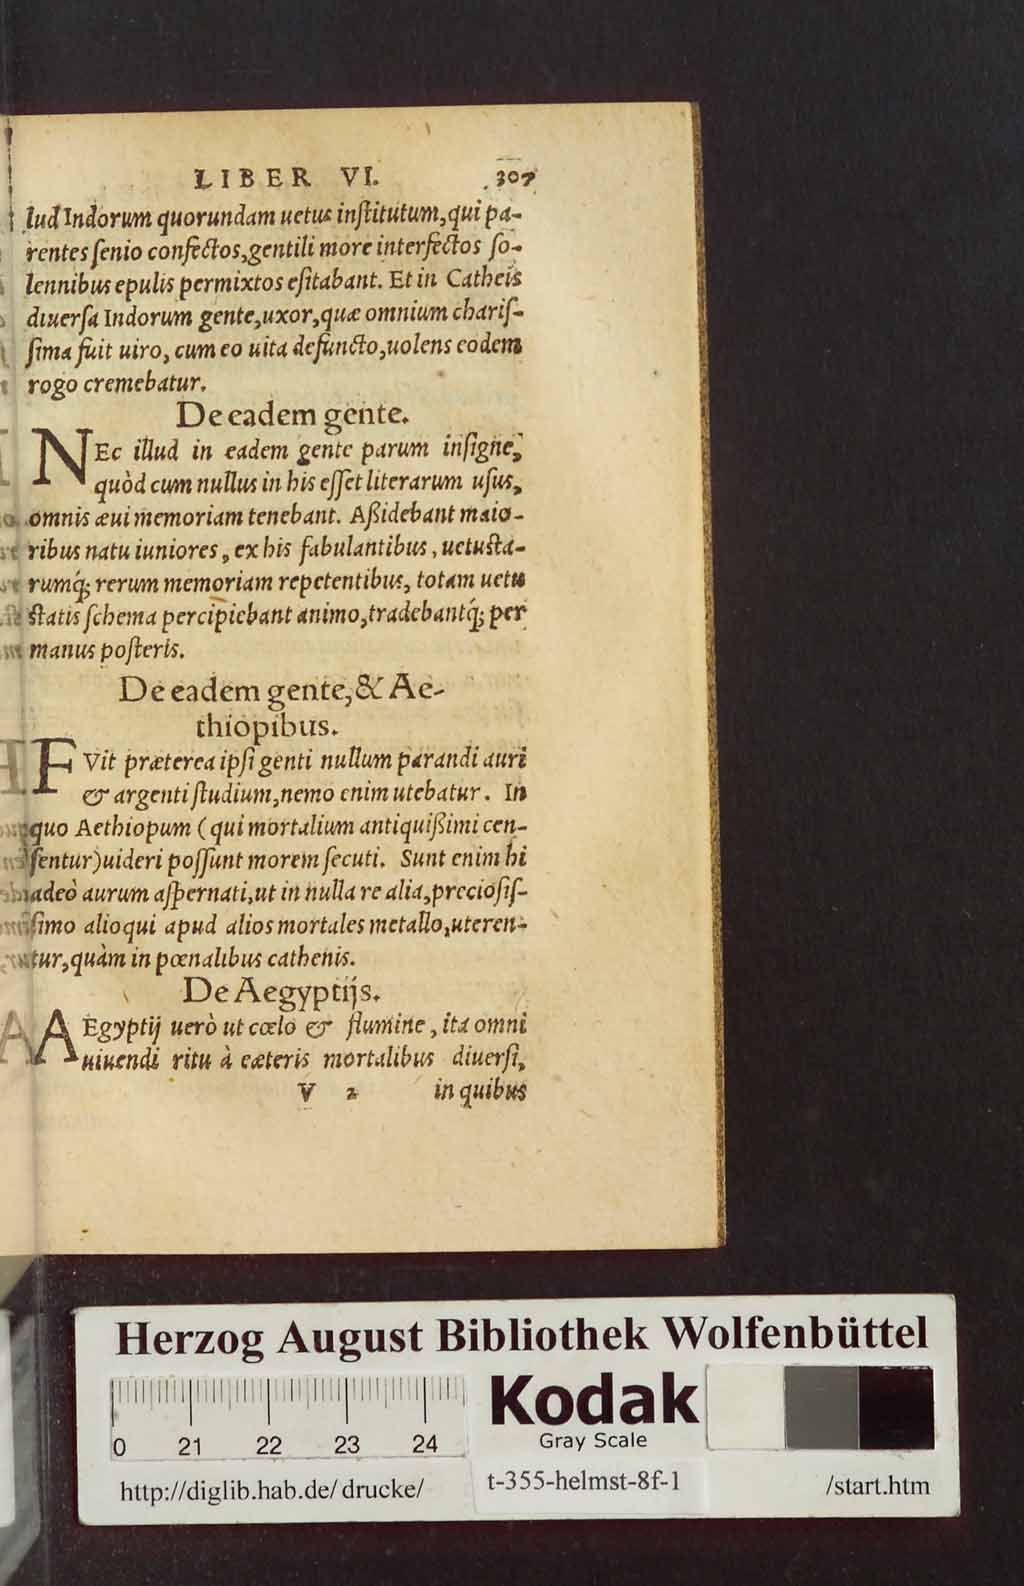 LIBER VI. 307
lud Indorum quorundam uetus inſtitutum, qui pa-
rentes ſenio confectos, gentili more interfectos ſo-
lennibus epulis permixtos eſitabant. Et in Catheis
diuerſa Indorum gente, uxor, quæ omnium chariſ-
ſima fuit uiro, cum eo uita defuncto, uolens eodem
rogo cremebatur.
De eadem gente.
NEc illud in eadem gente parum inſigne,
quòd cum nullus in his eſſet literarum uſus,
omnis æui memoriam tenebant. Aßidebant maio-
ribus natu iuniores, ex his fabulantibus, uetuſta-
rumq́; rerum memoriam repetentibus, totam uetu
ſtatis ſchema percipiebant animo, tradebantq́; per
manus poſteris.
De eadem gente, & Ae-
thiopibus.
FVit præterea ipſi genti nullum parandi auri
& argenti ſtudium, nemo enim utebatur. In
quo Aethiopum (qui mortalium antiquißimi cen-
ſentur) uideri poſſunt morem ſecuti. Sunt enim hi
adeò aurum aſpernati, ut in nulla re alia, precioſiſ-
ſimo alioqui apud alios mortales metallo, uteren-
tur, quàm in pœnalibus cathenis.
De Aegyptijs.
AEgyptij uerò ut cœlo & flumine, ita omni
uiuendi ritu à cæteris mortalibus diuerſi,
V 2 in quibus
Herzog August Bibliothek Wolfenbüttel
0 21 22 23 24
Kodak
Gray Scale
http://diglib.hab.de/drucke/ t-355-helmst-8f-1 /start.htm